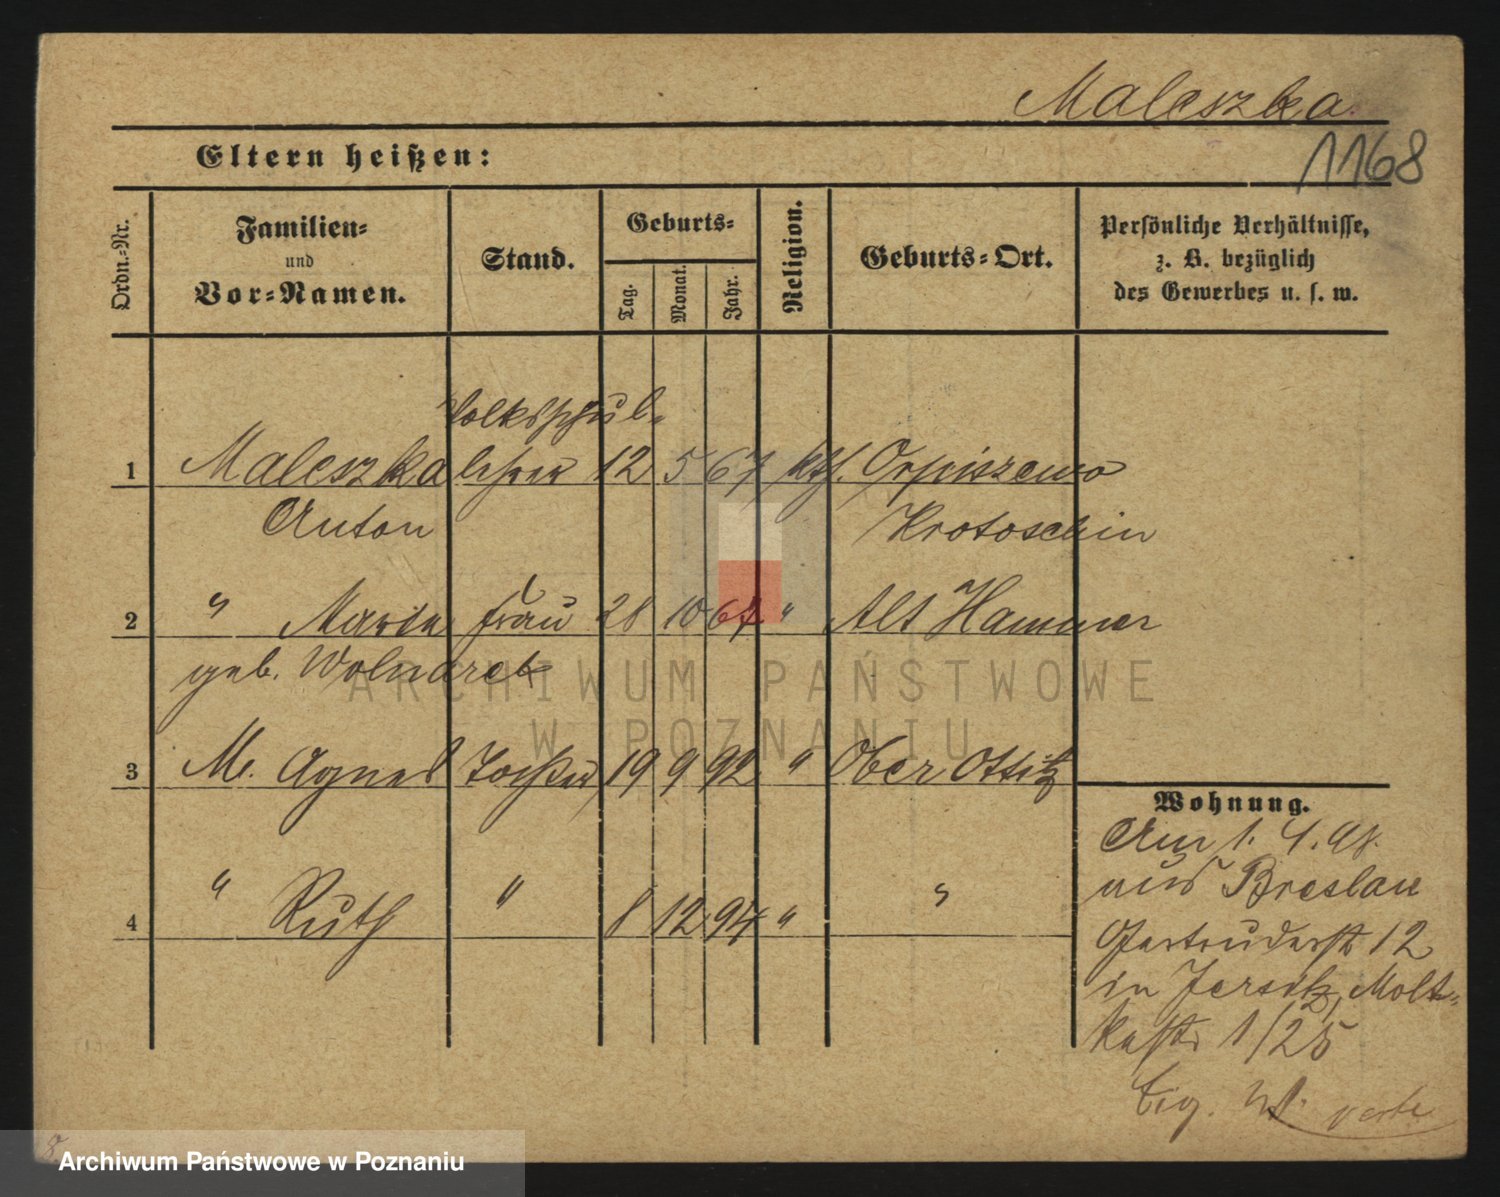 Maleszka.
1168
Eltern heißen:
Ordn.=Nr.
Familien=
und
Vor=Namen.
Stand.
Geburts=
Tag.
Monat.
Jahr.
Religion.
Geburts=Ort.
Persönliche Verhältnisse,
z. B. bezüglich
des Gewerbes u. s. w.
Volksschul-
1 Maleszka lehrer 12 5 67 kth. Orpiszewo
Anton Krotoschin
2 " Marie Frau 28 10 67 " Alt Hammer
geb.
3 M. Agnes Tochter 19 9 92 " Ober Ottitz
4 " Ruth " 8 12 94 " "
Wohnung.
Am 1. 4. 98.
aus Breslau
Gertrudenstr 12
in Jersitz, Molt-
kestr 1/25
Eig. W. verte
ARCHIWUM PAŃSTWOWE
W POZNANIU
Archiwum Państwowe w Poznaniu